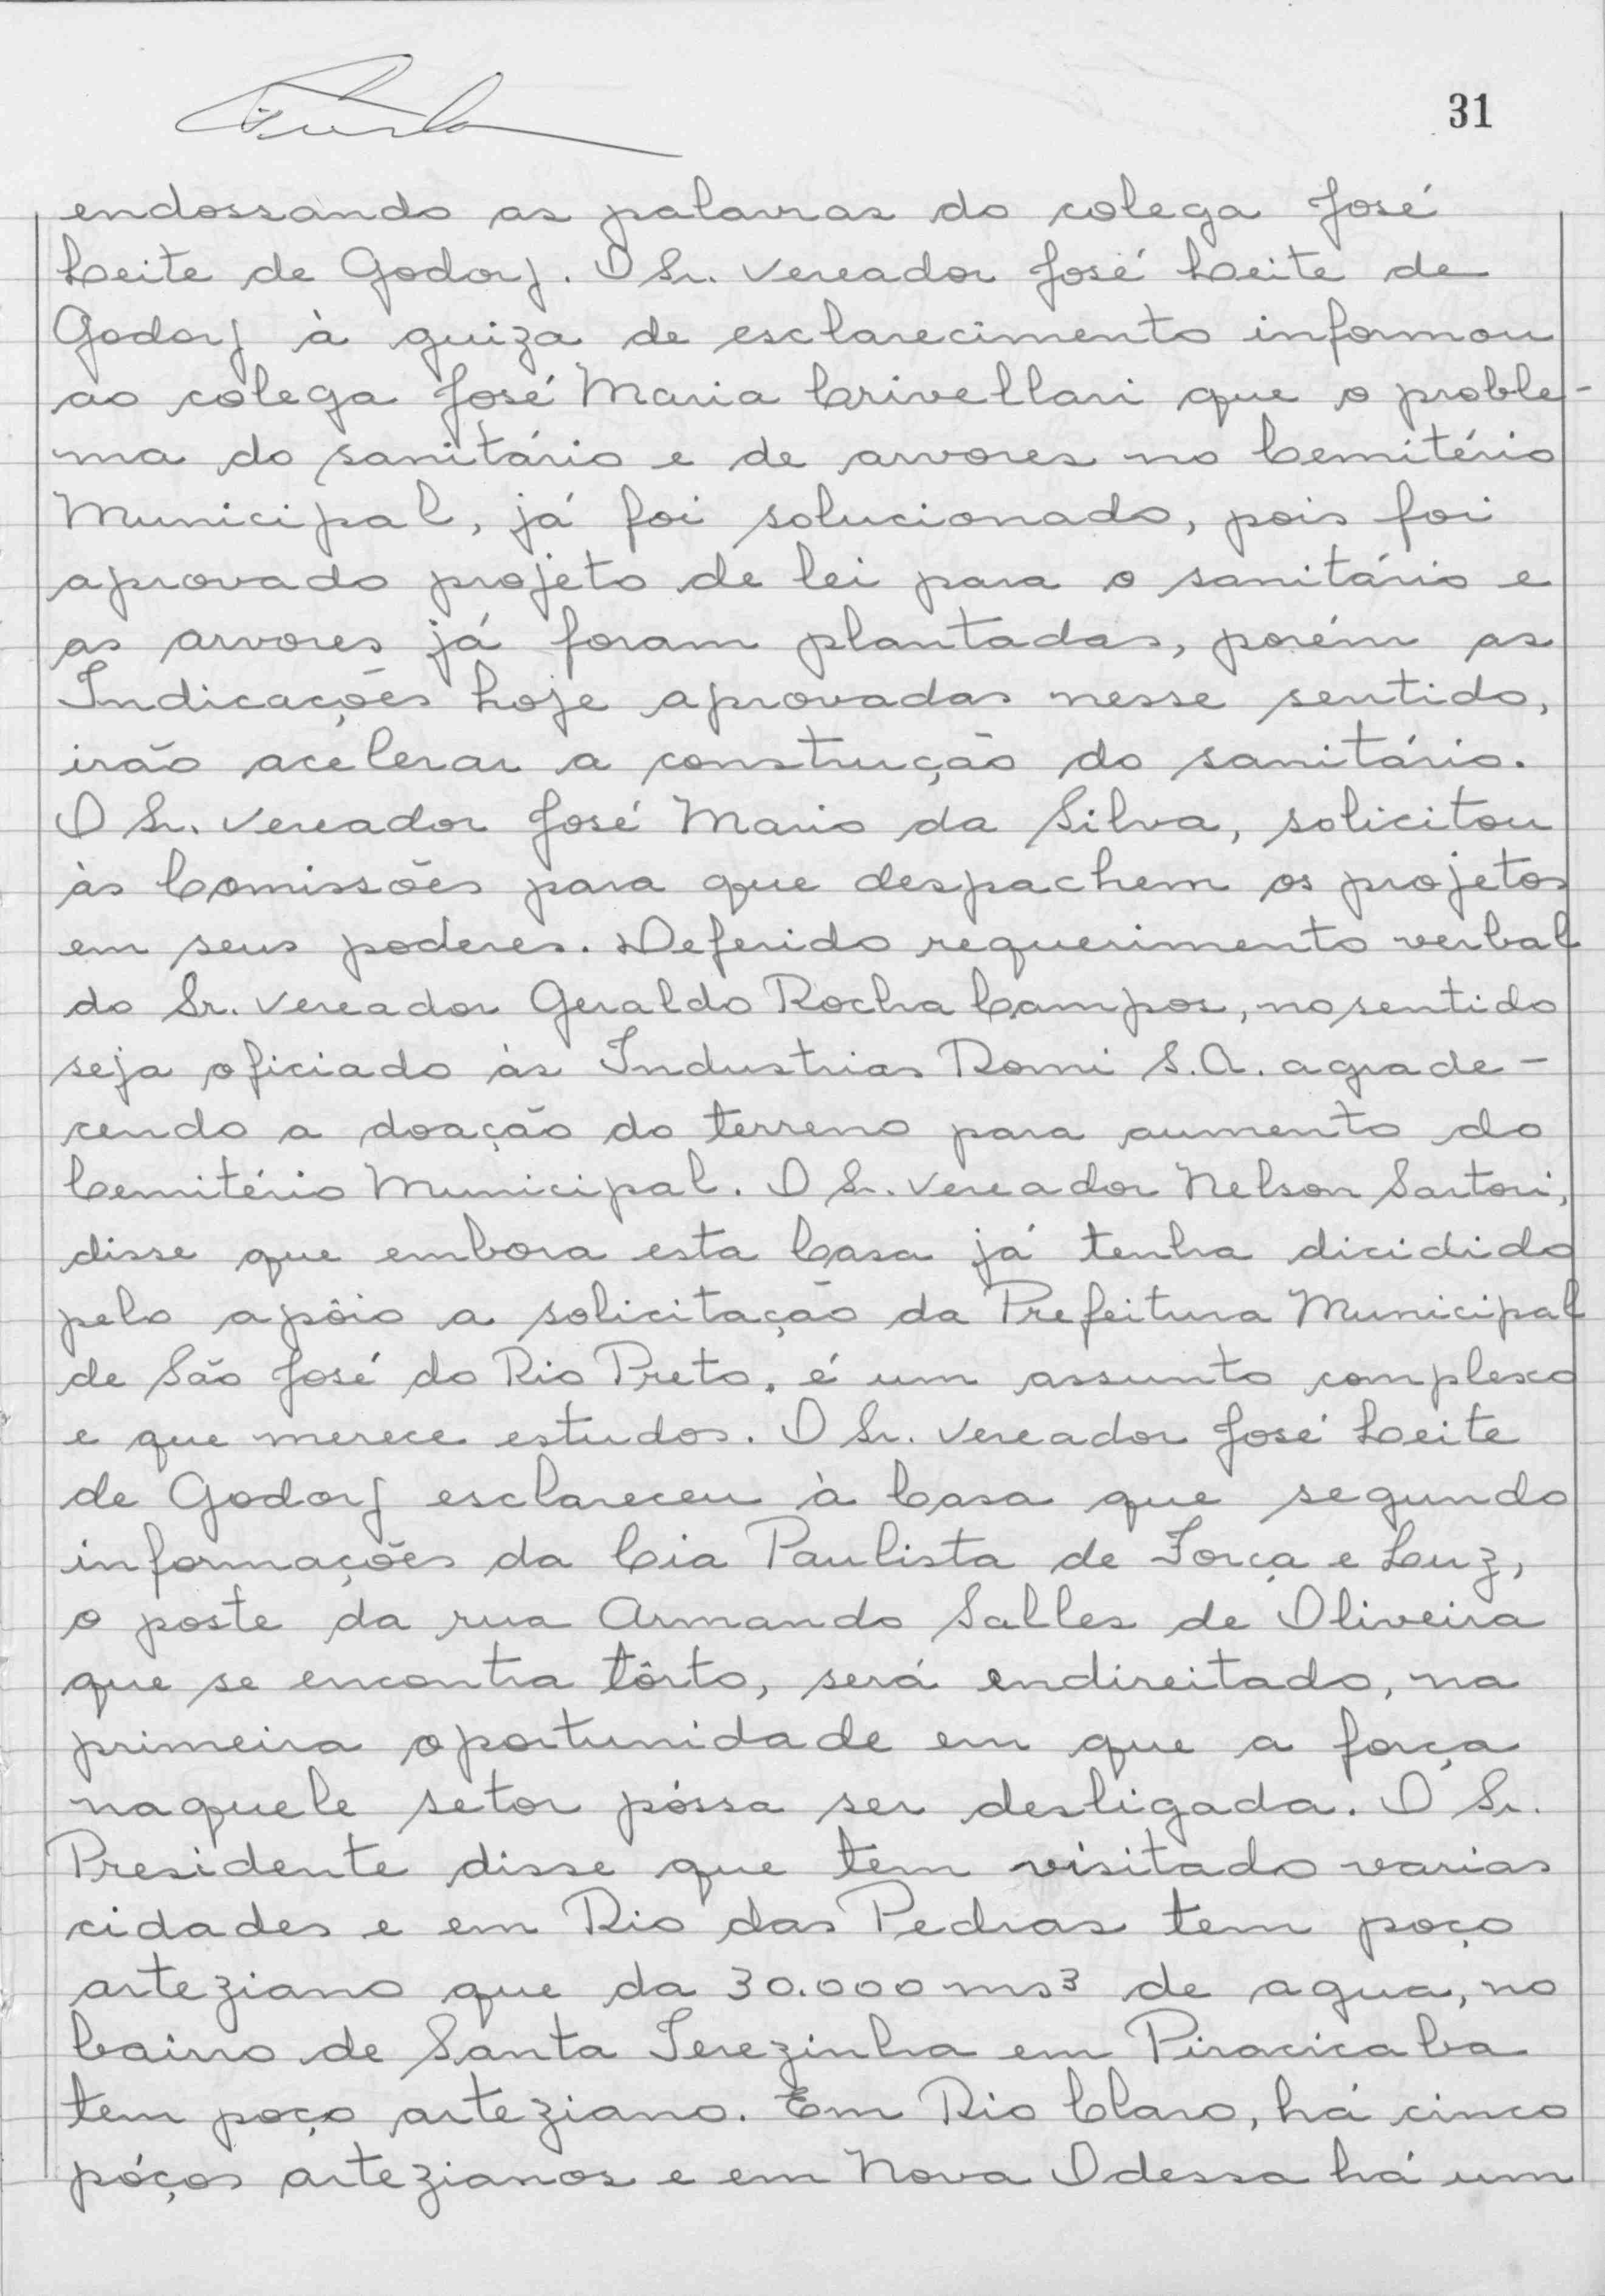 31
endossando as palavras do colega José
Leite de Godoy. O Sr. Vereador José Leite de
Godoy à guiza de esclarecimento informou
ao colega José Maria Crivellari que o proble-
ma do sanitário e de arvores no Cemitério
Municipal, já foi solucionado, pois foi
aprovado projeto de lei para o sanitário e
as arvores já foram plantadas, porém as
Indicações hoje aprovadas nesse sentido,
irão acelerar a construção do sanitário.
O Sr. Vereador José Mario da Silva, solicitou
às Comissões para que despachem os projetos
em seus poderes. Deferido requerimento verbal
do Sr. Vereador Geraldo Rocha Campos, no sentido
seja oficiado às Industrias Romi S.A. agrade-
cendo a doação do terreno para aumento do
Cemitério Municipal. O Sr. Vereador Nelson Sartori,
disse que embora esta Casa já tenha dicidido
pelo apôio a solicitação da Prefeitura Municipal
de São José do Rio Preto, é um assunto complexo
e que merece estudos. O Sr. Vereador José Leite
de Godoy esclareceu à Casa que segundo
informações da Cia Paulista de Força e Luz,
o poste da rua Armando Salles de Oliveira
que se encontra tôrto, será endireitado, na
primeira oportunidade em que a força
naquele setor póssa ser desligada. O Sr.
Presidente disse que tem visitado varias
cidades e em Rio das Pedras tem poço
arteziano que da 30.000 ms3 de agua, no
bairro de Santa Terezinha em Piracicaba
tem poço arteziano. Em Rio Claro, há cinco
póços artezianos e em Nova Odessa há um